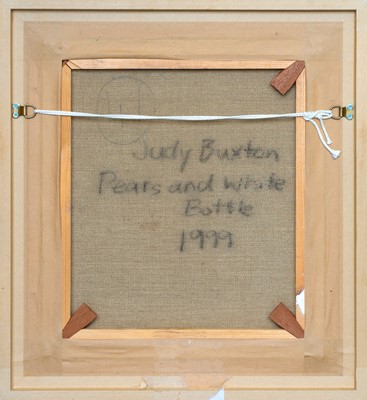 Judy Buxton
Pears and White
Bottle
1999